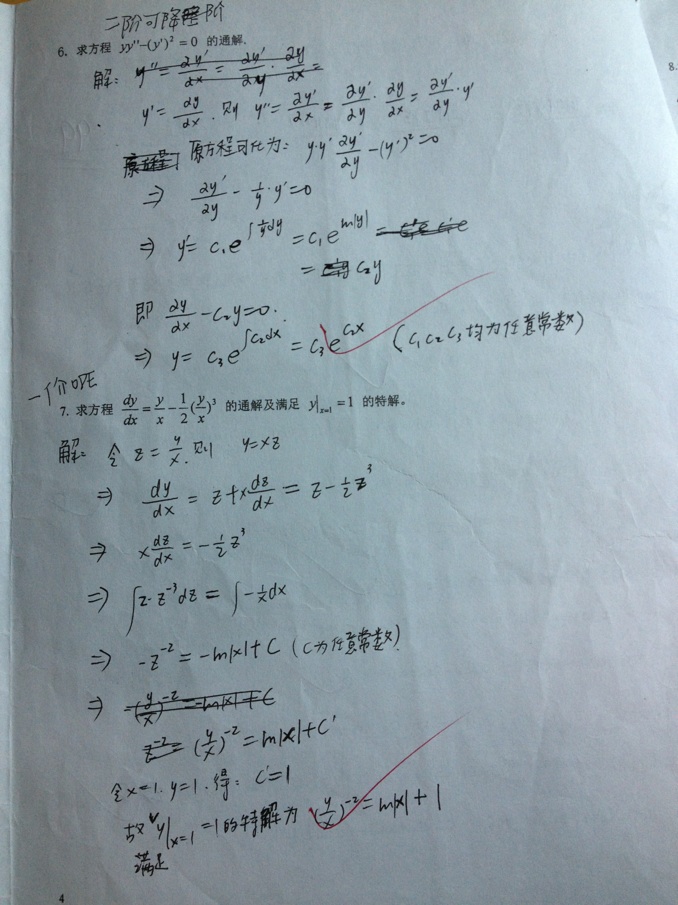 二阶可降阶
6. 求方程 yy''-(y')² = 0 的通解.
解: y'' = ∂y'/∂x = ∂y'/∂y · ∂y/∂x =
y' = ∂y/∂x. 则 y'' = ∂y'/∂x = ∂y'/∂y · ∂y/∂x = ∂y'/∂y · y'
原方程 原方程可化为: y·y' ∂y'/∂y - (y')² = 0
⇒ ∂y'/∂y - 1/y · y' = 0
⇒ y' = c₁e^{∫1/y dy} = c₁e^{ln|y|}
= c₂y
即 ∂y/∂x - c₂y = 0.
⇒ y = c₃e^{∫c₂dx} = c₃e^{c₂x} (c₁c₂c₃均为任意常数)
8.
一阶
7. 求方程 dy/dx = y/x - 1/2(y/x)³ 的通解及满足 y|ₓ₌₁ = 1 的特解。
解: 令 z = y/x. 则 y = xz
⇒ dy/dx = z + x dz/dx = z - 1/2 z³
⇒ x dz/dx = -1/2 z³
⇒ ∫2·z⁻³dz = ∫-1/x dx
⇒ -z⁻² = -ln|x| + C (C为任意常数)
⇒ -(y/x)⁻² = -ln|x| + C
z⁻² = (y/x)⁻² = ln|x| + C'
令x=1. y=1. 得: C'=1
故满足 y|ₓ₌₁ = 1的特解为 (y/x)⁻² = ln|x| + 1
4